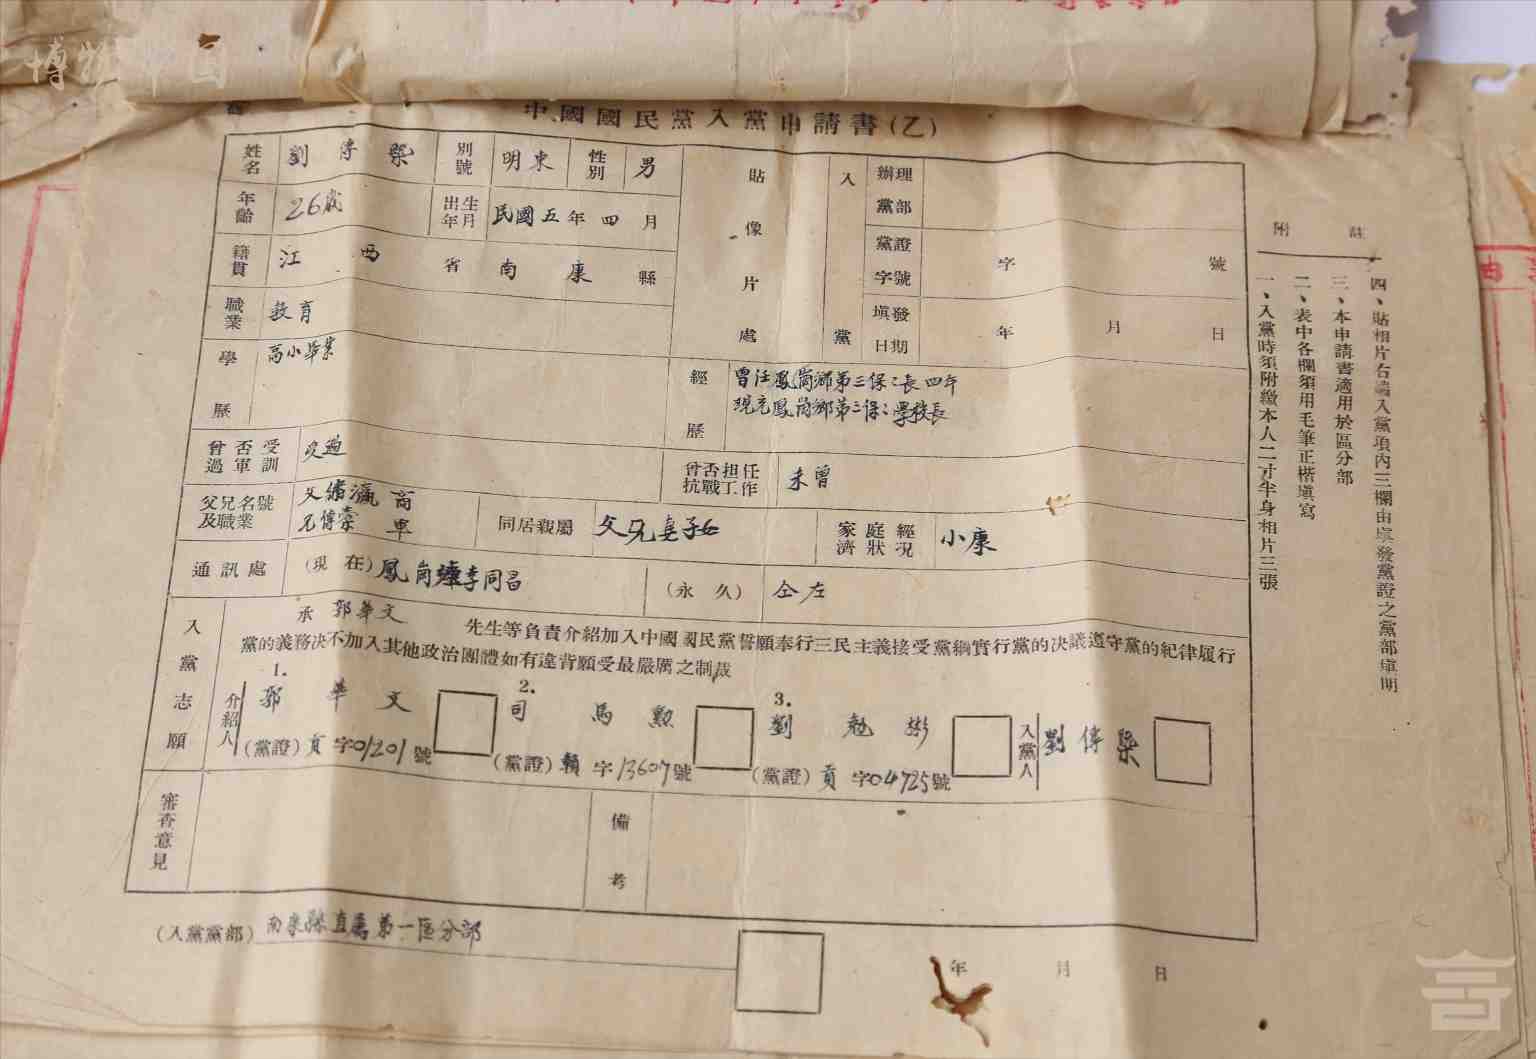 博物中国
中國國民黨入黨申請書(乙)
姓名 劉傳榘 別號 明東 性別 男
年齡 26歲 出生年月 民國五年四月
籍貫 江西省南康縣
職業 教育
學歷 高小畢業
貼像片處
入黨
辦理黨部
黨證字號 字 號
填發日期 年 月 日
經歷 曾任鳳崗鄉第三保〻長四年
現充鳳崗鄉第三保〻學校長
曾否受過軍訓 受過
曾否担任抗戰工作 未曾
父兄名號及職業 父 商
兄傳
同居親屬 父兄妻子女
家庭經濟狀況 小康
通訊處 (現在) 鳳崗 李同昌
(永久) 仝左
入黨志願
承 郭華文 先生等負責介紹加入中國國民黨誓願奉行三民主義接受黨綱實行黨的決議遵守黨的紀律履行
黨的義務決不加入其他政治團體如有違背願受最嚴厲之制裁
介紹人
1. 郭華文
(黨證) 貢字01201號
2. 司馬勲
(黨證) 贛字13607號
3. 劉勉彬
(黨證) 貢字04725號
入黨人 劉傳榘
審查意見
備考
(入黨黨部) 南康縣直屬第一區分部
年 月 日
附註
一、入黨時須附繳本人二寸半身相片三張
二、表中各欄須用毛筆正楷填寫
三、本申請書適用於區分部
四、貼相片右端入黨項內三欄由填發黨證之黨部填明